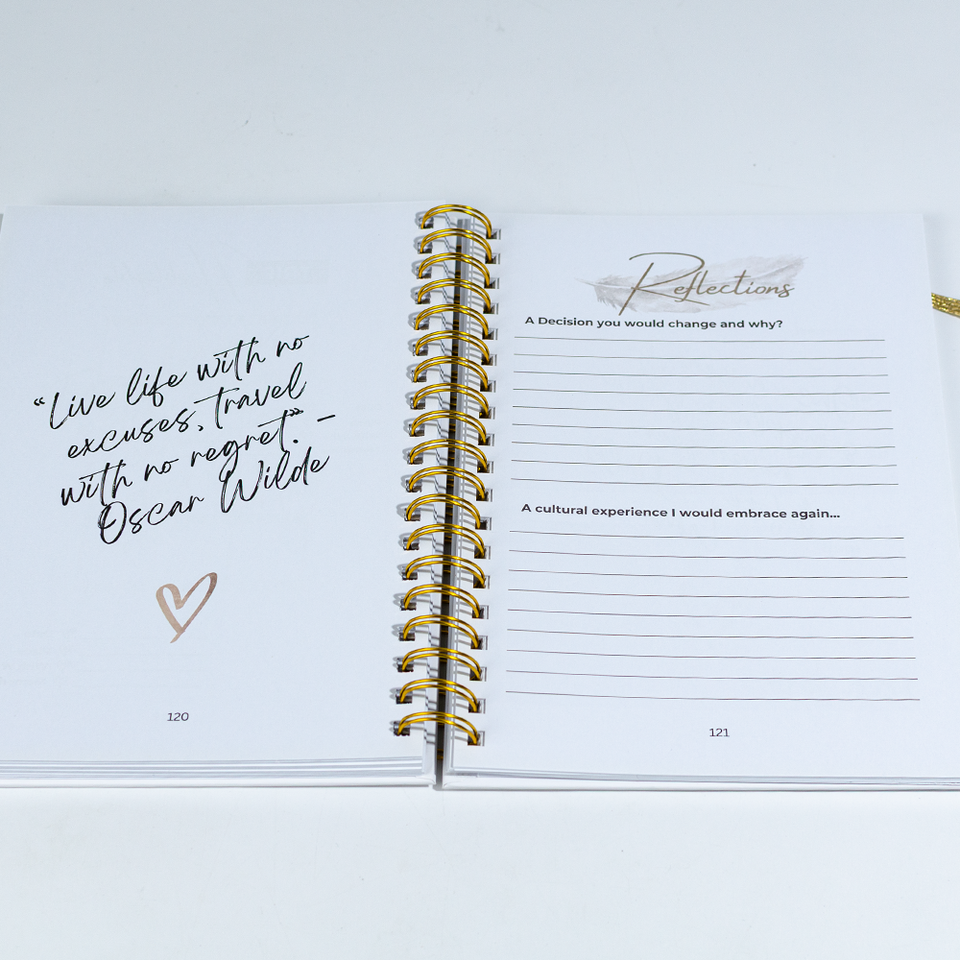 “Live life with no
excuses, travel
with no regret”. -
Oscar Wilde
120
Reflections
A Decision you would change and why?
A cultural experience I would embrace again...
121